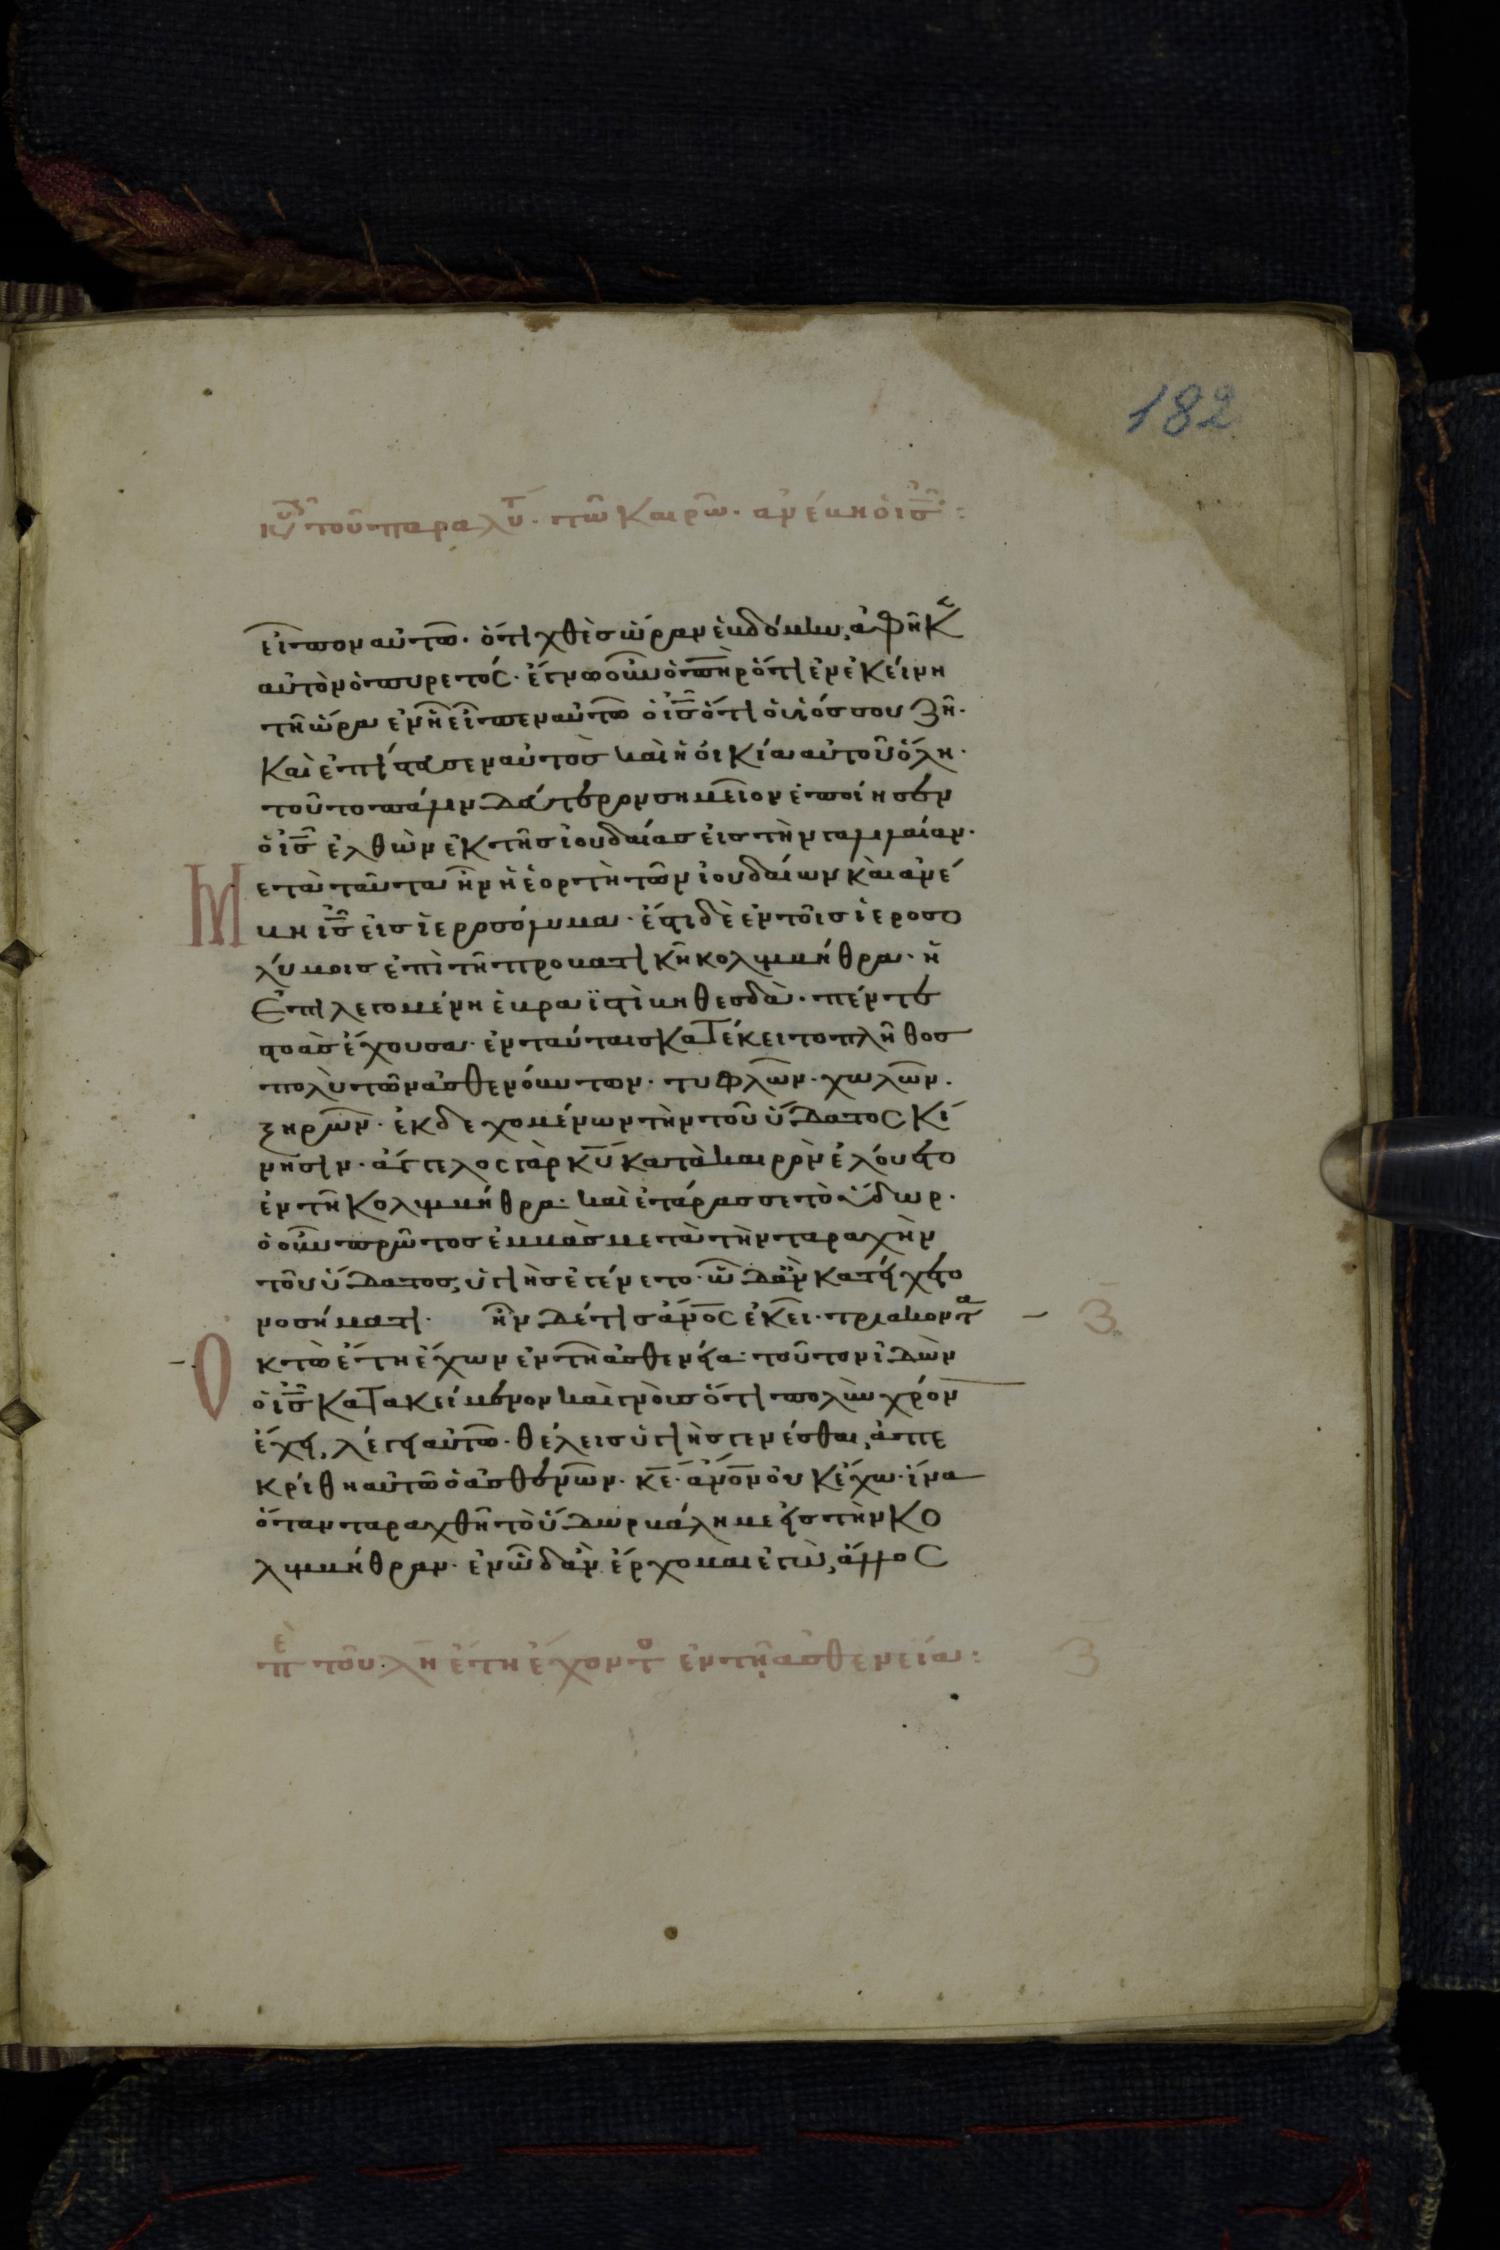 182
κυ δ τοῦ παραλυ. τῶ καιρῶ. ἀνέβη ὁ ισ:
εἶπον αὐτῶ. ὅτι χθὲσ ὥραν ἑβδόμην, ἀφῆκε
αὐτὸν ὁ πυρετός. ἔγνω οὖν ὁ πηρ ὅτι ἐν ἐκείνη
τῆ ὥρα ἐν ἧ εἶπεν αὐτῶ ὁ ισ ὅτι ὁ υἱόσ σου ζῆ.
καὶ ἐπίστευσεν αὐτοσ καὶ ἡ οἰκία αὐτοῦ ὅλη.
τοῦτο πάλιν δεύτερον σημεῖον ἐποίησεν
ὁ ισ ἐλθὼν ἐκ τῆσ ἰουδαίασ εἰσ τὴν γαλιλαίαν.
Μετὰ ταῦτα ἦν ἡ ἑορτὴ τῶν ἰουδαίων καὶ ἀνέ
βη ισ εἰσ ἱεροσόλυμα. ἔστι δὲ ἐν τοῖσ ἱεροσο
λύμοισ ἐπὶ τῆ προβατικῆ κολυμβήθρα. ἡ
ἐπιλεγομένη ἑβραϊστὶ βηθεσδὰ. πέντε
στοὰσ ἔχουσα. ἐν ταύταισ κατέκειτο πλῆθοσ
πολὺ τῶν ἀσθενούντων. τυφλῶν. χωλῶν.
ξηρῶν. ἐκδεχομένων τὴν τοῦ ὕδατος κί
νησιν. ἄγγελος γὰρ κυ κατὰ καιρὸν ἐλούετο
ἐν τῆ κολυμβήθρα. καὶ ἐτάρασσε τὸ ὕδωρ.
ὁ οὖν πρῶτοσ ἐμβὰσ μετὰ τὴν ταραχὴν
τοῦ ὕδατοσ, ὑγιὴσ ἐγένετο. ὧ δἂν κατείχετο
νοσήματι. ἦν δέ τισ ἄνος ἐκεῖ. τριακοντα
Οκτὼ ἔτη ἔχων ἐν τῆ ἀσθενεία. τοῦτον ἰδὼν
ὁ ισ κατακείμενον καὶ γνοὺσ ὅτι πολὺν χρόν
ἔχει, λέγει αὐτῶ. θέλεισ ὑγιὴσ γενέσθαι, ἀπε
κρίθη αὐτῶ ὁ ἀσθενῶν. κε. ἄνον οὐκ ἔχω. ἵνα
ὅταν ταραχθῆ τὸ ὕδωρ βάλη με εἰσ τὴν κο
λυμβήθραν. ἐν ὧ δἂν ἔρχομαι ἐγὼ, ἄλλος
πε τοῦ. λη ἔτη ἔχοντο ἐν τῆ ἀσθενεία: